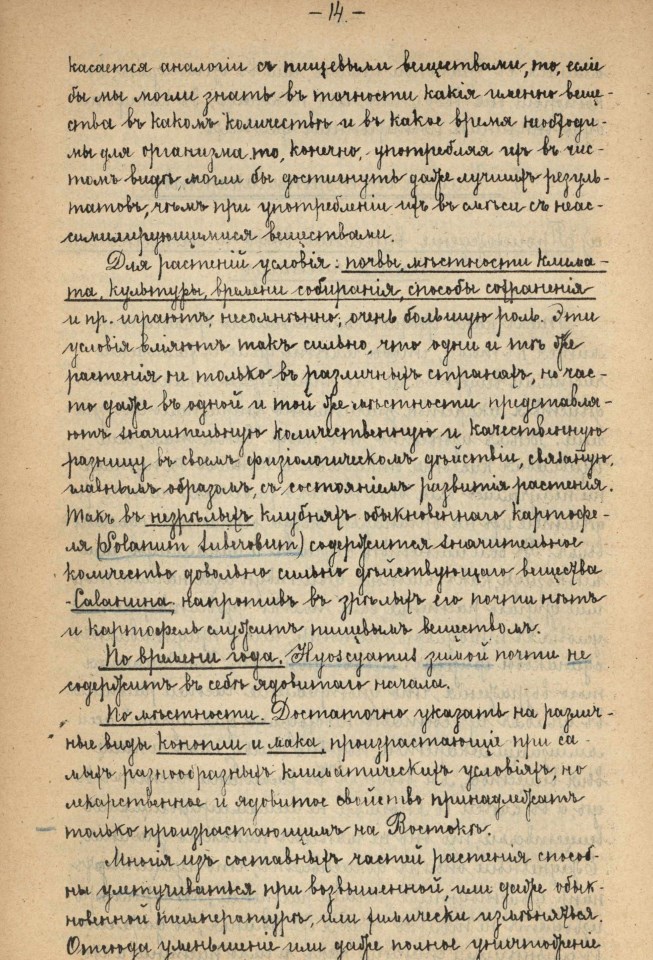 - 14. -
касается аналогіи съ пищевыми веществами, то, если
бы мы могли знать въ точности какія именно веще-
ства въ какомъ количествѣ и въ какое время необходи-
мы для организма, то, конечно, употребляя ихъ въ чис-
томъ видѣ, могли бы достигнуть даже лучшихъ резуль-
татовъ, чѣмъ при употребленіи ихъ въ смѣси съ неас-
симилирующимися веществами.
Для растеній условія: почвы, мѣстности клима-
та, культуры, времени собиранія, способы сохраненія
и пр. играютъ, несомнѣнно, очень большую роль. Эти
условія вліяютъ такъ сильно, что одни и тѣ же
растенія не только въ различныхъ странахъ, но час-
то даже въ одной и той же мѣстности представля-
ютъ значительную количественную и качественную
разницу въ своемъ физіологическомъ дѣйствіи, связаную,
главнымъ образомъ, съ состояніемъ развитія растенія.
Такъ въ незрѣлыхъ клубняхъ обыкновеннаго картофе-
ля (Solanum tuberosum) содержится значительное
количество довольно сильно дѣйствующаго вещества
- Саланина, напротивъ въ зрѣлыхъ его почти нѣтъ
и картофель служитъ пищевымъ веществомъ.
По времени года. Hyoscyamus зимой почти не
содержитъ въ себѣ ядовитаго начала.
По мѣстности. Достаточно указать на различ-
ные виды конопли и мака, произрастающіе при са-
мыхъ разнообразныхъ климатическихъ условіяхъ, но
лекарственное и ядовитое свойство принадлежитъ
только произрастающимъ на Востокѣ.
Многія изъ составныхъ частей растенія способ-
ны улетучиваться при возвышенной, или даже обык-
новенной температурѣ, или химически измѣняться.
Отсюда уменьшеніе или даже полное уничтоженіе